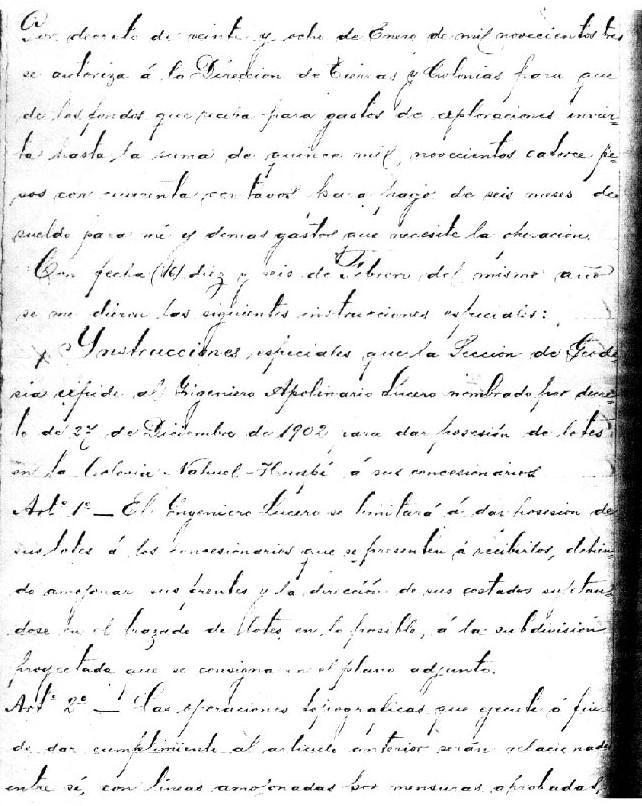 Por decreto de veinte y ocho de Enero de mil novecientos tres
se autoriza á la Direccion de Tierras y Colonias para que
de los fondos que para gastos de esploraciones invier-
ta hasta la suma de quince mil novecientos catorce pe-
sos con cuarenta centavos para pago de seis meses de
sueldo para mi y demas gastos que necesite la operacion.
Con fecha (16) diez y seis de Febrero del mismo año
se me dieron las siguientes instrucciones especiales:
Ynstrucciones especiales que la Seccion de Geode
sia expide al Yngeniero Apolinario Lucero nombrado por decre-
to de 27 de Diciembre de 1902 para dar posesión de lotes
en la Colonia Nahuel-Huapí á sus concesionarios
Artº 1º — El Yngeniero Lucero se limitará á dar posesion de
sus lotes á los concesionarios que se presenten á recibirlos, debien
do amojonar sus frentes y la dirección de sus costados sujetan
dose en el trazado de lotes, en lo posible, á la subdivisión
proyectada que se consigna en el plano adjunto.
Artº 2º — Las operaciones topograficas que ejecute á fin
de dar cumplimiento al articulo anterior serán relacionadas
entre sí, con líneas amojonadas por mensuras aprobadas,